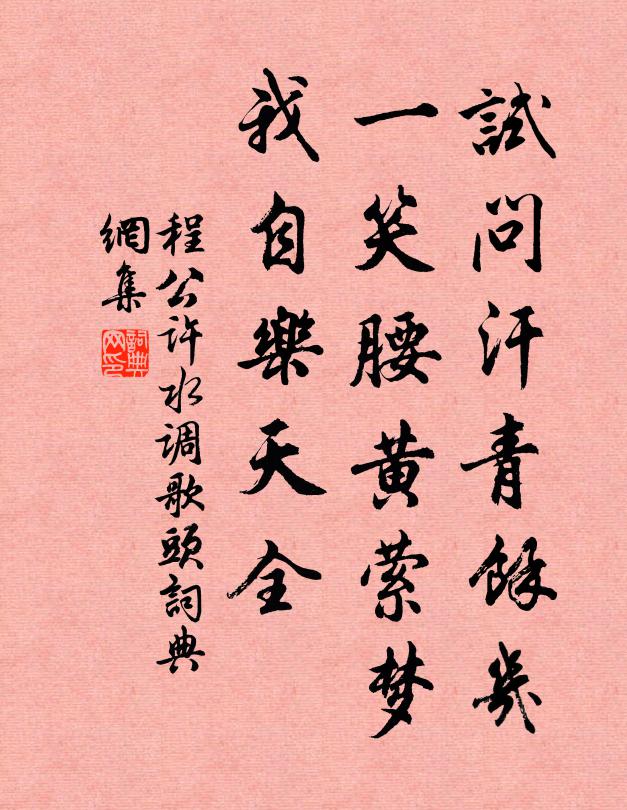 試問汗青餘幾
一笑腰黄萦梦
我自樂天全
程公許水调歌頭詞典
網集
詞典
网印